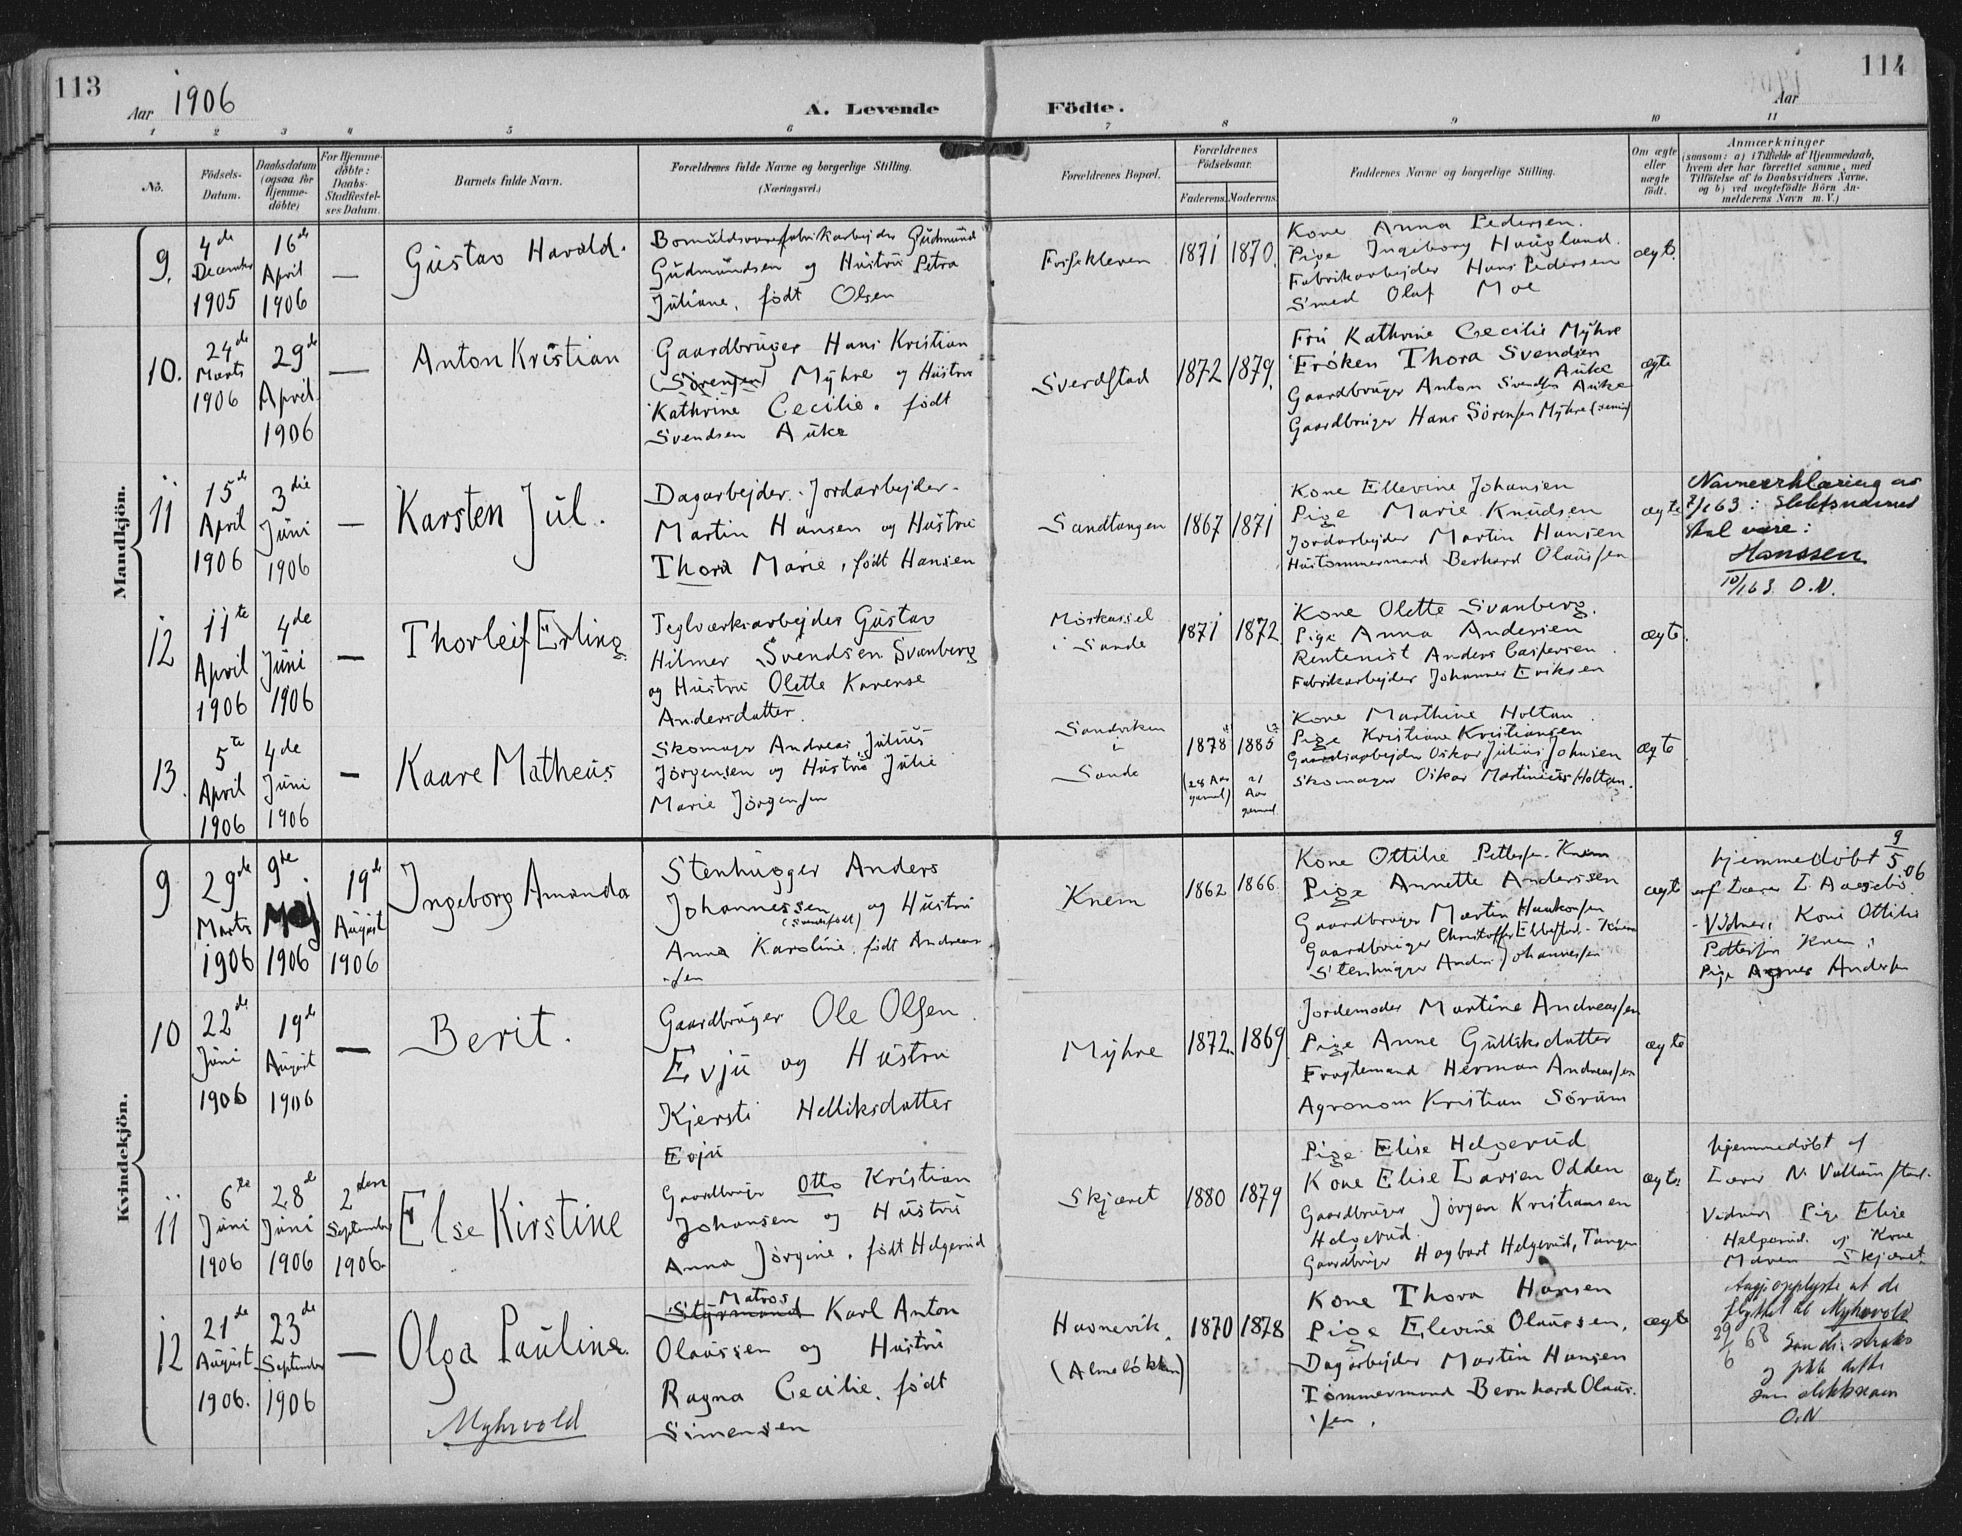 113
Aar 1906
A. Levende
Födte.
114
Aar
1
2
3
4
5
6
7
8
9
10
11
No.
Födsels-
Datum.
Daabsdatum
(ogsaa för
Hjemme-
döbte)
For Hjemme-
döbte:
Daabs-
Stadfæstel-
ses Datum.
Barnets fulde Navn.
Forældrenes fulde Navne og borgerlige Stilling.
(Næringsvei.)
Forældrenes Bopæl.
Forældrenes
Födselsaar.
Faderens.
Moderens.
Faddernes Navne og borgerlige Stilling.
Om ægte
eller
uægte
födt.
Anmærkninger
(saasom: a) i Tilfælde af Hjemmedaab,
hvem der har forrettet samme, med
Tilföielse af to Daabsvidners Navne.
og b) ved uægtefödte Börn An-
melderens Navn m. V.)
Mandkjön.
9.
4de
December
1905
16de
April
1906
—
Gustav Harald.
Bomuldsvarefabrikarbejder Gudmund
Gudmundsen og Hustru Petra
Juliane, født Olsen
1871
1870.
Kone Anna Pedersen.
Pige Ingeborg Haugland.
Fabrikarbejder Hans Pedersen
Smed Olaf Moe
ægte.
10.
24de
Marts
1906
29de
April
1906
—
Anton Kristian
Gaardbruger Hans Kristian
(Sörensen) Myhre og Hustru
Kathrine Cecilie, født
Svendsen Auke
Sverdstad
1872
1879.
Fru Kathrine Cecilie Myhre
Frøken Thora Svendsen
Auke
Gaardbruger Anton Svendsen Auke
Gaardbruger Hans Sörensen Myhre (senior)
ægte
11
15de
April
1906
3die
Juni
1906
—
Karsten Jul.
Dagarbejder. Jordarbejder.
Martin Hansen og Hustru
Thora Marie, født Hansen
Sandtangen
1867
1871
Kone Ellevine Johansen
Pige Marie Knudsen
Jordarbejder Martin Hansen
Hustømmermand Berhard Olaussen
ægte
Navneerklæring av
: Slektsnavnet
skal være:
Hanssen
O.N.
12
11te
April
1906
4de
Juni
1906
—
Thorleif Erling
Teglværksarbejder Gustav
Hilmer Svendsen Svanberg
og Hustru Olette Karense
Andersdatter.
i Sande
1871
1872
Kone Olette Svanberg.
Pige Anna Andersen
Rentenist Anders Caspersen.
Fabrikarbejder Johannes Eriksen
ægte.
13.
5te
April
1906
4de
Juni
1906
—
Kaare Matheus
Skomager Andreas Julius
Jørgensen og Hustru Julie
Marie Jørgensen
Sandviken
i
Sande
1878
(28 Aar
gammel)
1885
21
Aar
gammel
Kone Marthine Holtan.
Pige Kristiane Kristiansen
Gaardsarbejder Oskar Julius Johnsen
Skomager Oskar Martinius Holtan.
ægte
Kvindekjön.
9
29de
Marts
1906
9de.
Maj
1906
19de
August
1906
Ingeborg Amanda
Stenhugger Anders
Johannessen og Hustru
(Svenskfødt)
Anna Karoline, født Andreas-
sen
Knem
1862
1866.
Kone Ottilie Pettersen Knem
Pige Annette Anderssen
Gaardbruger Martin Haakonsen
Gaardbruger Christoffer Ebbestad - Knem
Stenhugger Anders Johannessen
ægte
hjemmedøbt 9/5 06
af Lærer
Vidner: Kone Ottilie
Pettersen Knem,
Pige Agnes Andersen
10
22de
Juni
1906
19de
August
1906
—
Berit.
Gaardbruger Ole Olsen
Evju og Hustru
Kjersti Helliksdatter
Evju
Myhre
1872.
1869
Jordemoder Martine Andreassen
Pige Anne Gulliksdatter
Fragtemand Herman Andreassen
Agronom Kristian Sörum
ægte
11
6te
Juni
1906
28de
Juni
1906
2den
September
1906.
Else Kirstine
Gaardbruger Otto Kristian
Johansen og Hustru
Anna Jørgine, født Helgerud
Skjæret
1880
1879
Pige Elise Helgerud
Kone Elise Larsen Odden
Gaardbruger Jørgen Kristiansen
Helgerud.
Gaardbruger Hagbart Helgerud, Tangen
ægte.
hjemmedøbt af
Lærer N.
Vidner Pige Elise
Helgerud og Kone
Maren Skjæret.
12
21de
August
1906.
23de
September
1906
—
Olga Pauline.
Myhrvold
Matros
Styrmand Karl Anton
Olaussen og Hustru
Ragna Cecilie, født
Simensen
Havnevik.
1870
1878
Kone Thora Hansen
Pige Elevine Olaussen,
Dagarbejder Martin Hansen
Tømmermand Bernhard Olaus-
sen.
ægte
Myhrvold
29/6 68
og
som slektsnavn
O.N